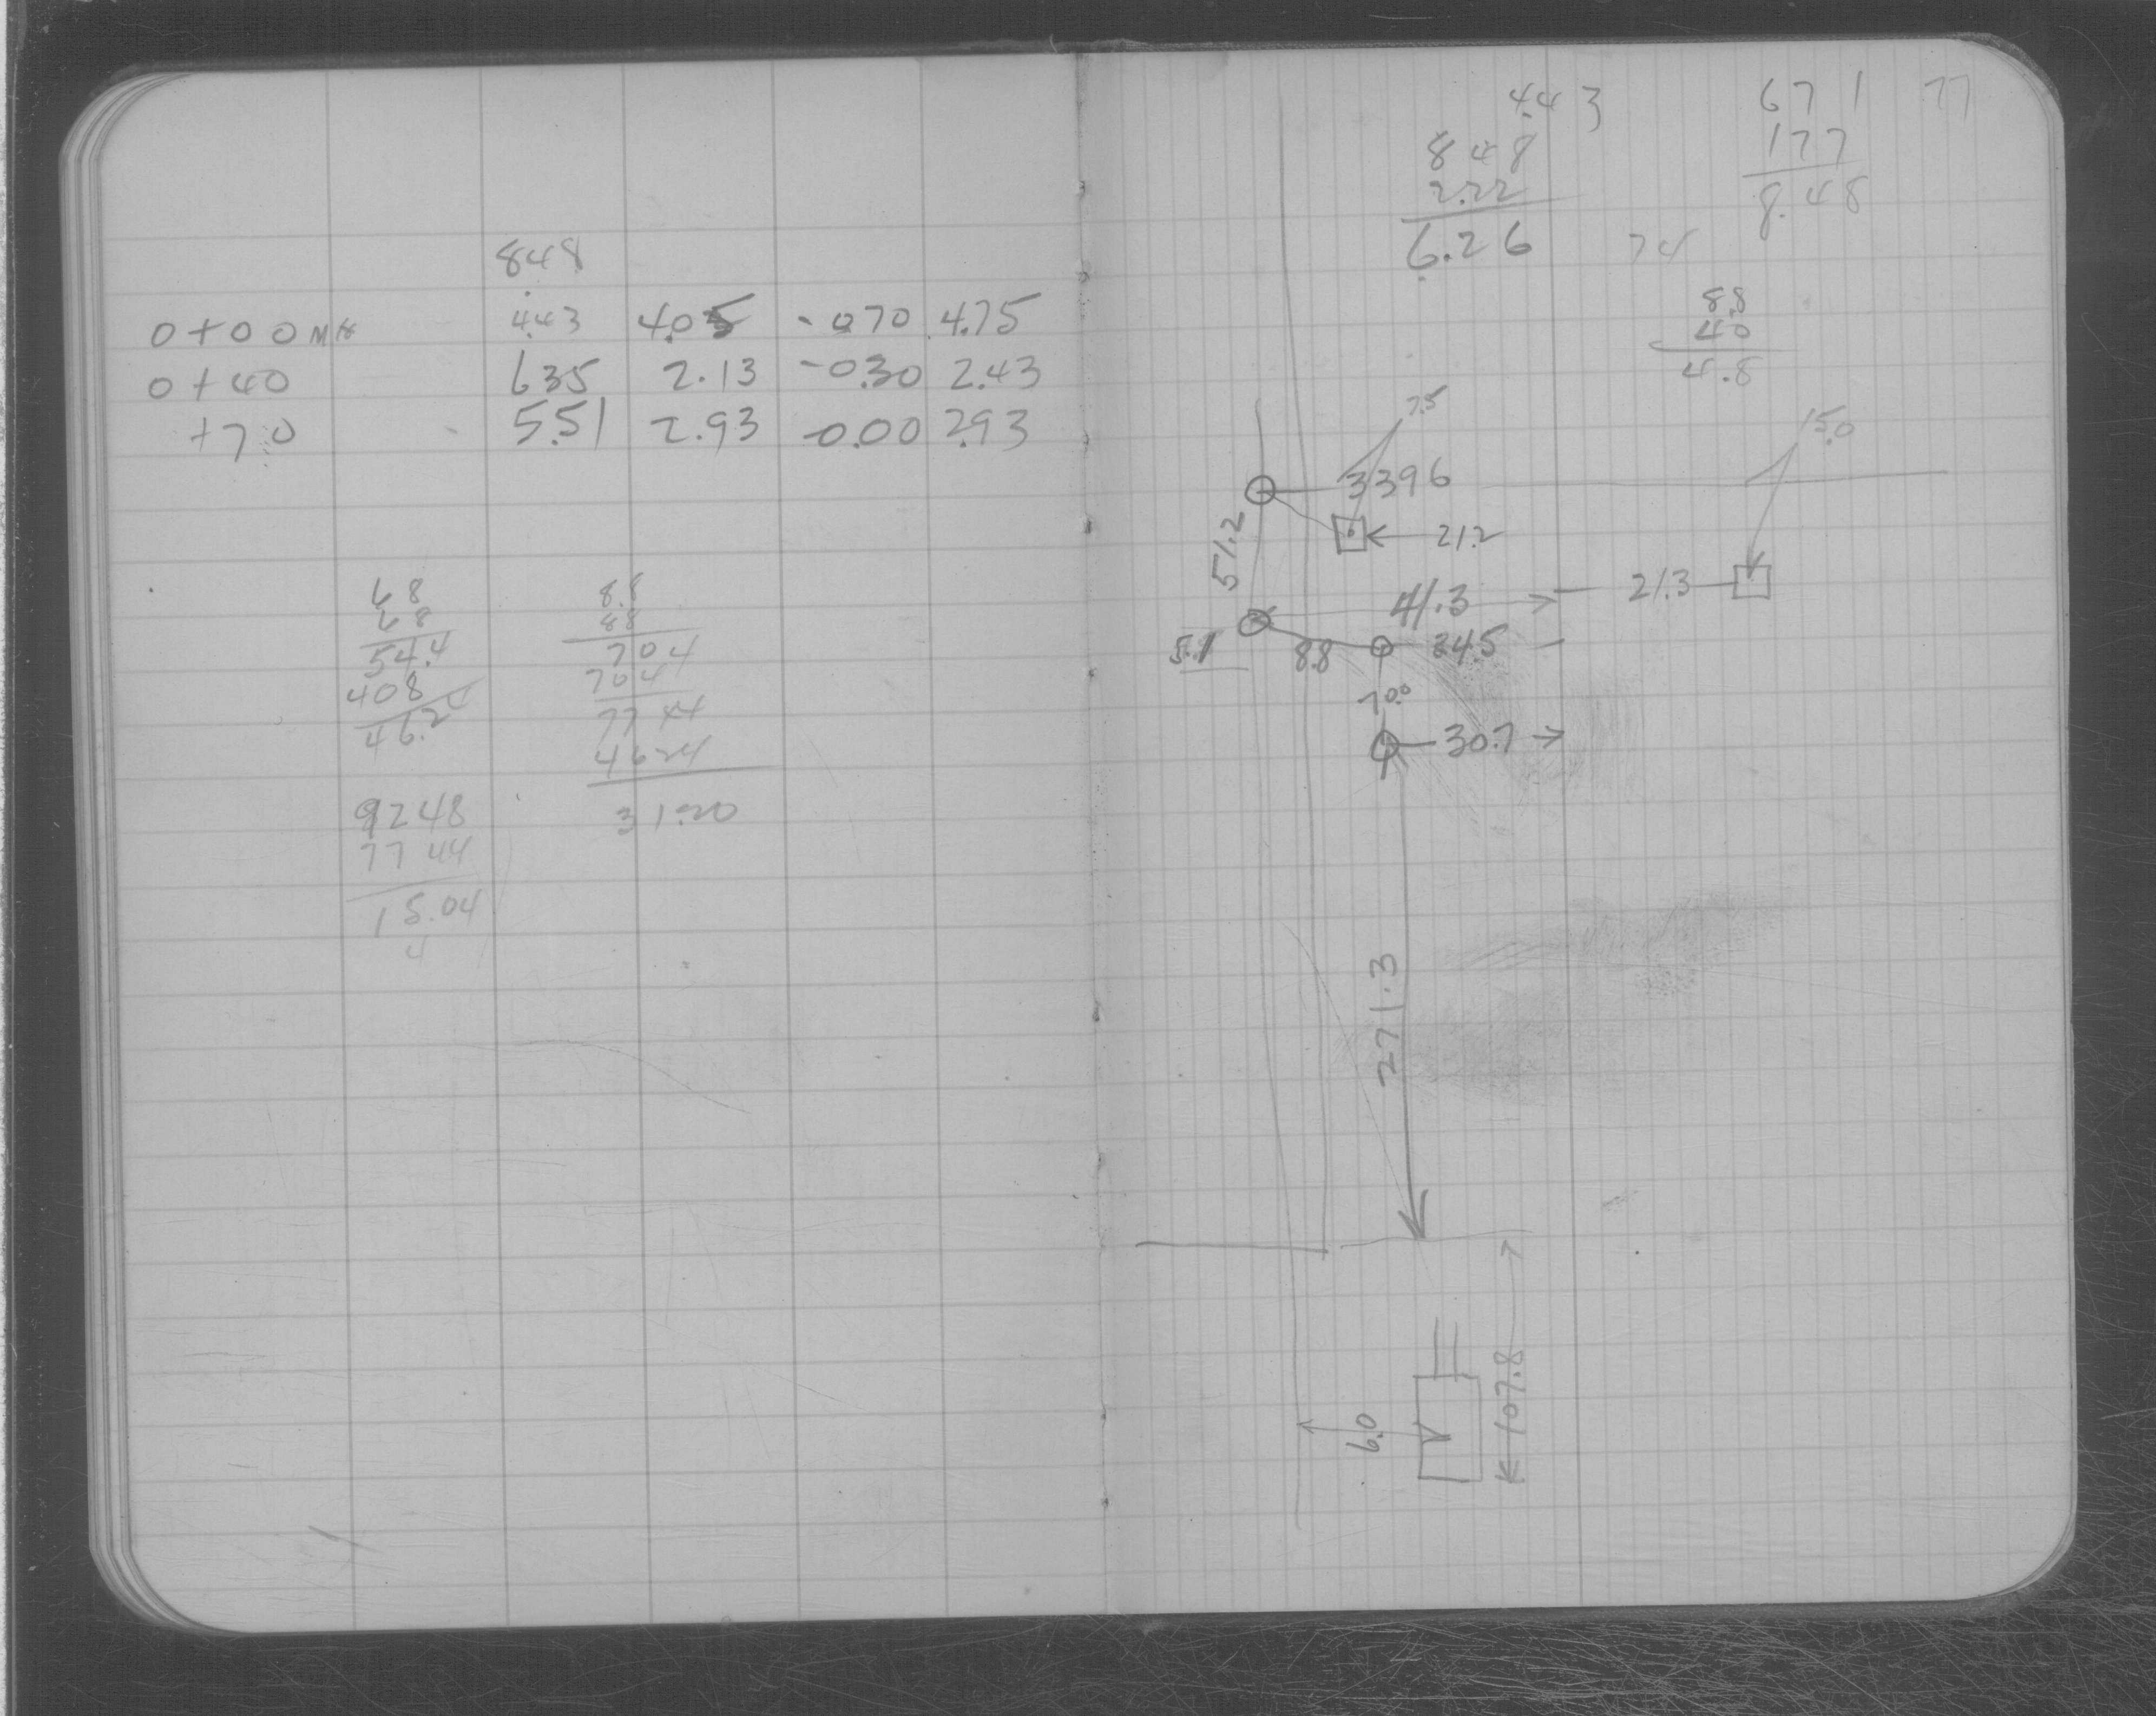 848
0+00 MH 4.43 4.05 -0.70 4.75
0+40 6.35 2.13 -0.30 2.43
+70 5.51 2.93 -0.00 2.93
68
68
54.4
408
46.2
9248
7744
15.04
4
8.8
88
704
704
7744
4624
31.20
4.43
848
2.22
6.26
671
177
8.48
77
74
8.8
4.0
4.8
7.5
15.0
3396
51.2
21.2
41.3
21.3
5.1
8.8
34.5
70.0
30.7
271.3
6.0
107.8